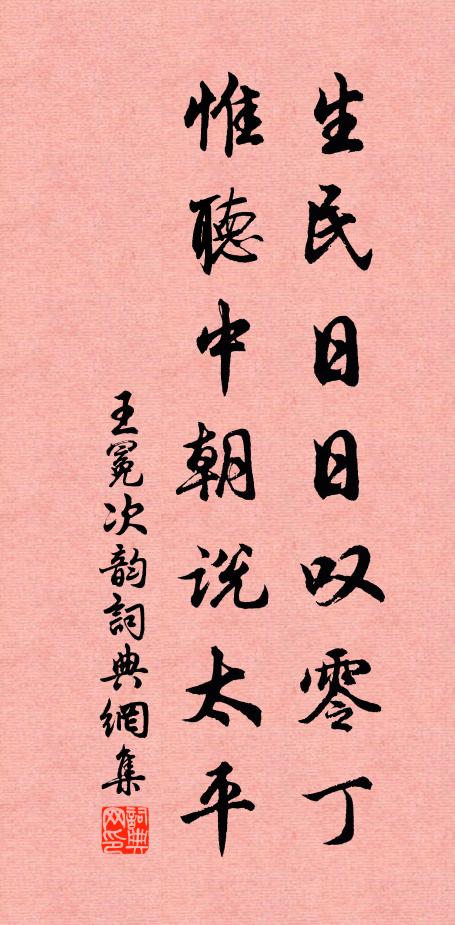 生民日日叹零丁
惟聴中朝说太平
王冕次韵詞典網集
詞典
网印